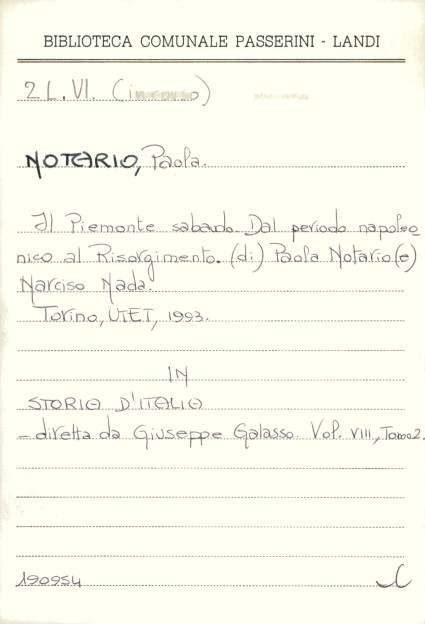 BIBLIOTECA COMUNALE PASSERINI - LANDI
2 L. VI. (in corso)
NOTARIO, Paola.
Il Piemonte sabaudo. Dal periodo napoleo
nico al Risorgimento. (di) Paola Notario (e)
Narciso Nada.
Torino, UTET, 1993.
IN
STORIA D'ITALIA
- diretta da Giuseppe Galasso. Vol. VIII, Tomo 2.
190954